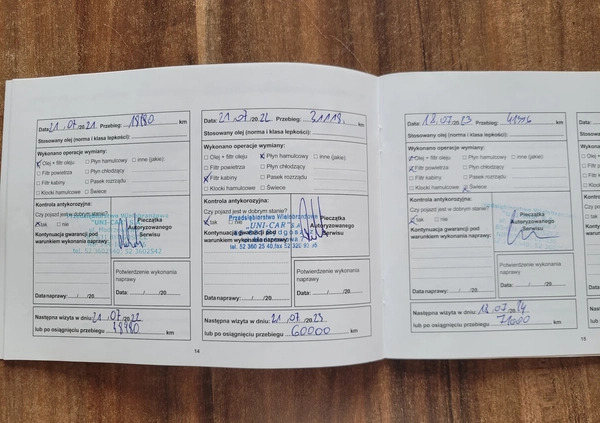 Data: 21 . 07 /20 21. Przebieg: km
Stosowany olej (norma i klasa lepkości):
Wykonano operacje wymiany:
Olej + filtr oleju Płyn hamulcowy inne (jakie):
Filtr powietrza Płyn chłodzący
Filtr kabiny Pasek rozrządu
Klocki hamulcowe Świece
Kontrola antykorozyjna:
Czy pojazd jest w dobrym stanie?
tak nie
Kontynuacja gwarancji pod
warunkiem wykonania naprawy:
Pieczątka
Autoryzowanego
Serwisu
"UNI-CAR"
Potwierdzenie wykonania
naprawy
Data: / /20
Data naprawy: / /20
Następna wizyta w dniu: 21 . 07 /20 22
lub po osiągnięciu przebiegu km
14
Data: 21 . 07 /20 22. Przebieg: 31118. km
Stosowany olej (norma i klasa lepkości):
Wykonano operacje wymiany:
Olej + filtr oleju Płyn hamulcowy inne (jakie):
Filtr powietrza Płyn chłodzący
Filtr kabiny Pasek rozrządu
Klocki hamulcowe Świece
Kontrola antykorozyjna:
Czy pojazd jest w dobrym stanie?
tak nie
Kontynuacja gwarancji pod
warunkiem wykonania naprawy:
Przedsiębiorstwo Wielobranżowe
"UNI-CAR"
Pieczątka
Autoryzowanego
Serwisu
Potwierdzenie wykonania
naprawy
Data: / /20
Data naprawy: / /20
Następna wizyta w dniu: 21 . 07 /20 23
lub po osiągnięciu przebiegu 60000 km
Data: 18 . 07 /20 23 Przebieg: km
Stosowany olej (norma i klasa lepkości):
Wykonano operacje wymiany:
Olej + filtr oleju Płyn hamulcowy inne (jakie):
Filtr powietrza Płyn chłodzący
Filtr kabiny Pasek rozrządu
Klocki hamulcowe Świece
Kontrola antykorozyjna:
Czy pojazd jest w dobrym stanie?
tak nie
Kontynuacja gwarancji pod
warunkiem wykonania naprawy:
Pieczątka
Autoryzowanego
Serwisu
Potwierdzenie wykonania
naprawy
Data: / /20
Data naprawy: / /20
Następna wizyta w dniu: 18 . 07 /20 24
lub po osiągnięciu przebiegu 71000 km
15